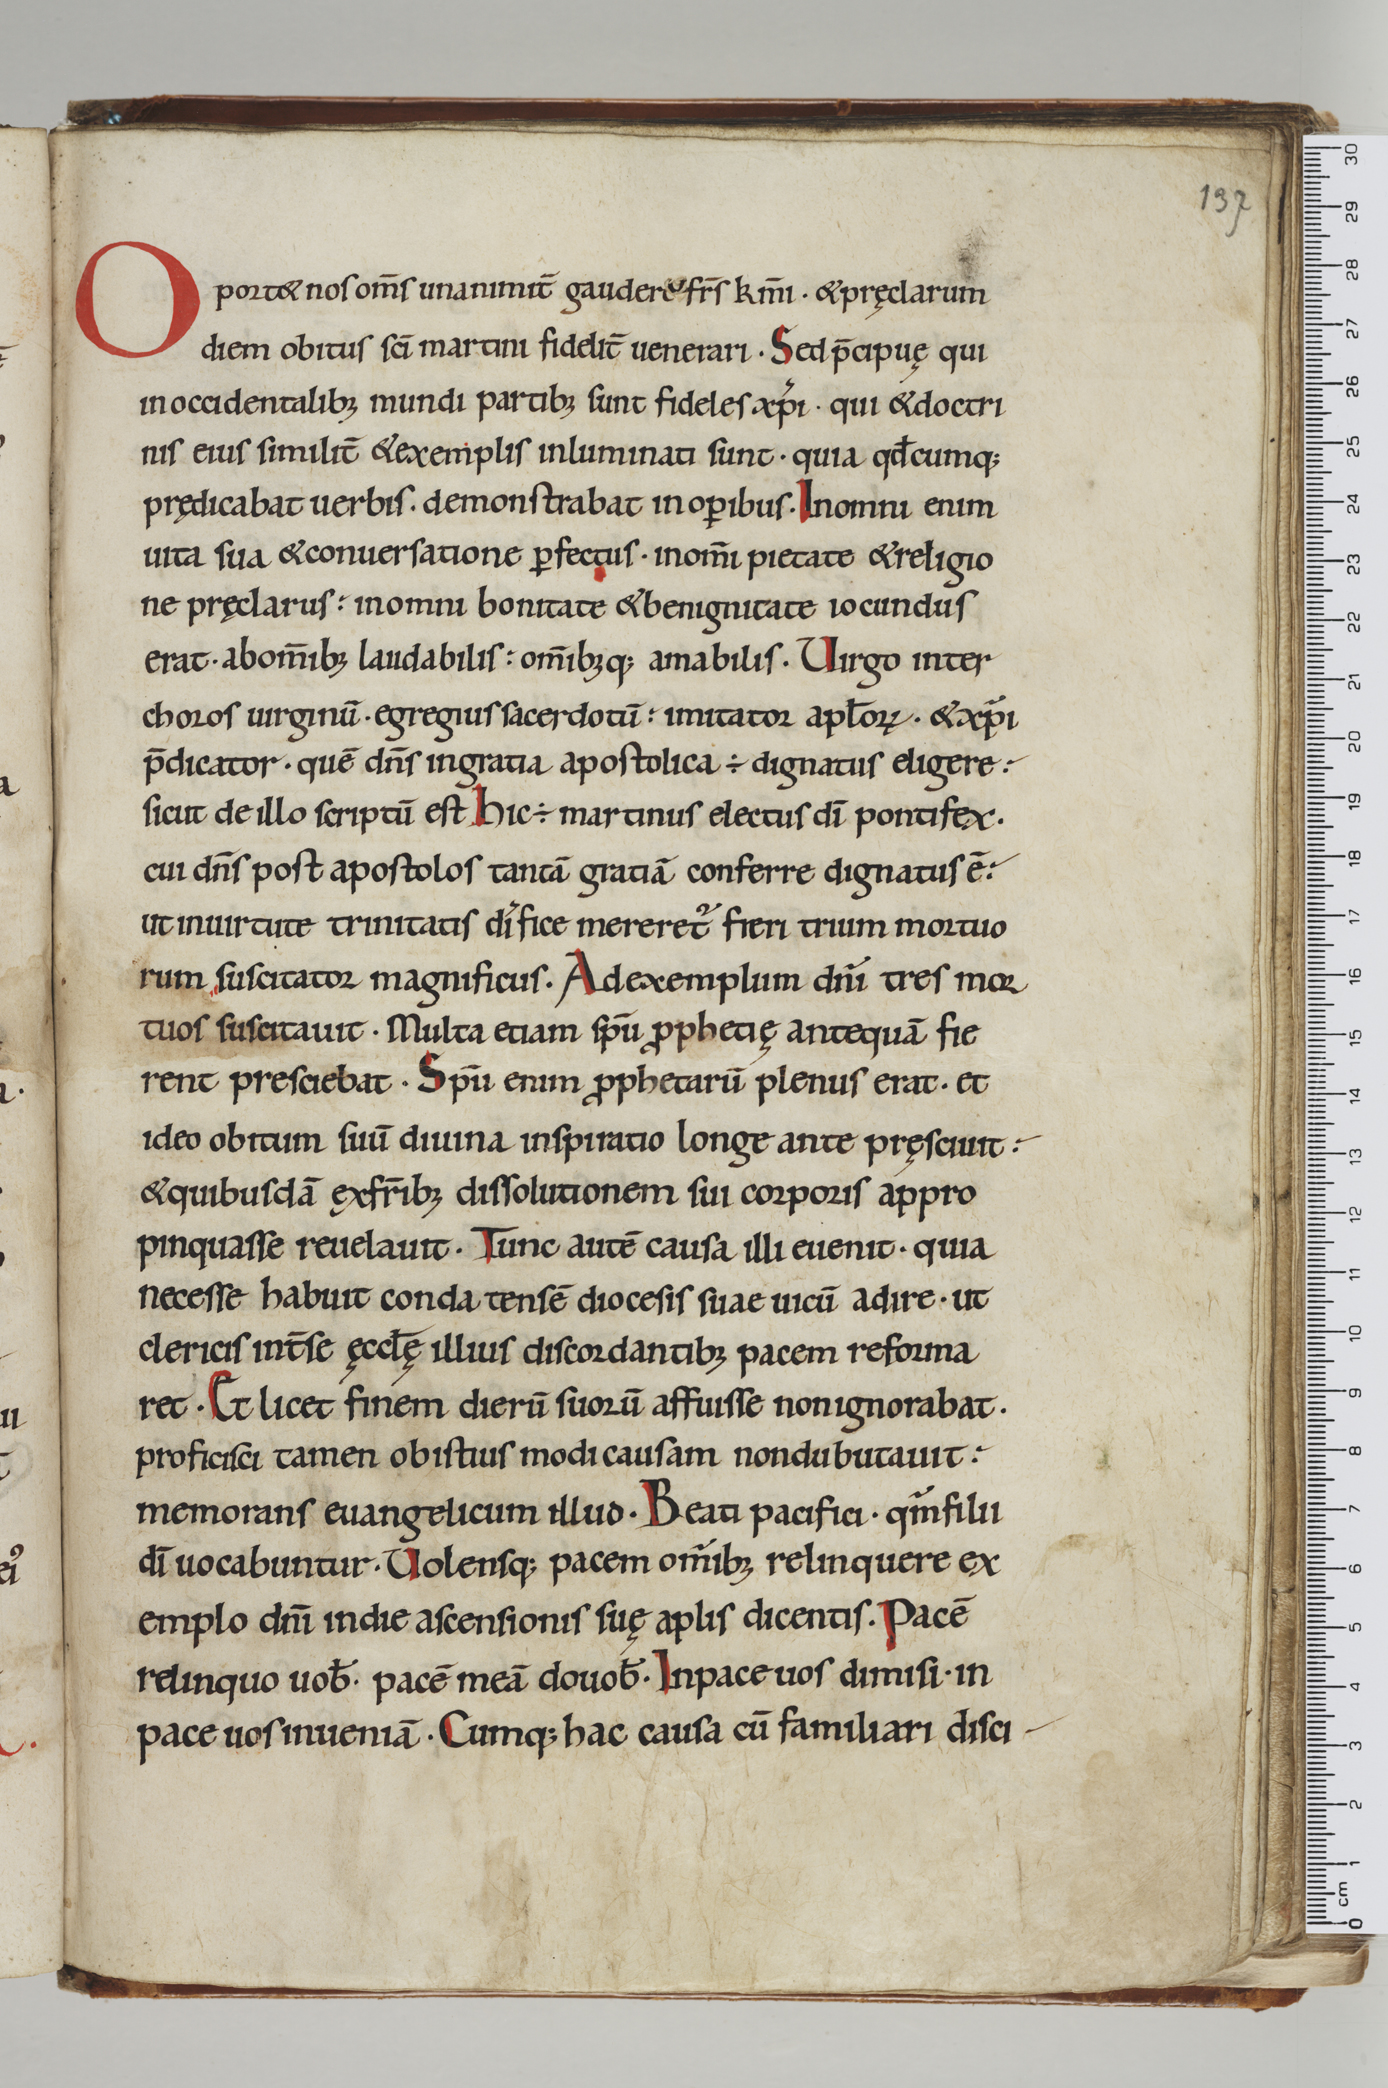 137
Oport& nos om̄s unanimit̄ gaudere fr̄s km̄i · & pręclarum
diem obitus sc̄i martini fidelit̄ uenerari · Sed p̄cipuę qui
in occidentalib; mundi partib; sunt fideles xp̄i · qui & doctri
nis eius similit̄ & exemplis inluminati sunt · quia qđcumq;
prędicabat uerbis · demonstrabat in oꝑibus · In omni enim
uita sua & conuersatione ꝑfectus · in om̄i pietate & religio
ne pręclarus : in omni bonitate & benignitate iocundus
erat · ab om̄ib; laudabilis : om̄ib;q; amabilis · Uirgo inter
choros uirginū · egregius sacerdotū : imitator apl̄oꝝ · & xp̄i
p̄dicator · quē dn̄s in gratia apostolica ÷ dignatus eligere :
sicut de illo scriptū est hic ÷ martinus electus dī pontifex ·
cui dn̄s post apostolos tantā gratiā conferre dignatus ē :
ut in uirtute trinitatis dīfice mereret̄ fieri trium mortuo
rum suscitator magnificus · Ad exemplum dn̄i tres mor
tuos suscitauit · Multa etiam sp̄u ꝓphetię antequā fie
rent presciebat · Sp̄u enim ꝓphetarū plenus erat · et
ideo obitum suū diuina inspiratio longe ante pręsciuit :
& quibusdā ex fr̄ib; dissolutionem sui corporis appro
pinquasse reuelauit · Tunc autē causa illi euenit · quia
necesse habuit condatensē diocesis suae uicū adire · ut
clericis int̄ se ęccl̄ę illius discordantib; pacem reforma
ret · Et licet finem dierū suorū affuisse non ignorabat ·
proficisci tamen ob istius modi causam non dubutauit :
memorans euangelicum illud · Beati pacifici · qm̄ filii
dī uocabuntur · Uolensq; pacem om̄ib; relinquere ex
emplo dn̄i in die ascensionis suę aplis dicentis · Pacē
relinquo uob̄ · pacē meā do uob̄ · In pace uos dimisi · in
pace uos inueniā · Cumq; hac causa cū familiari disci